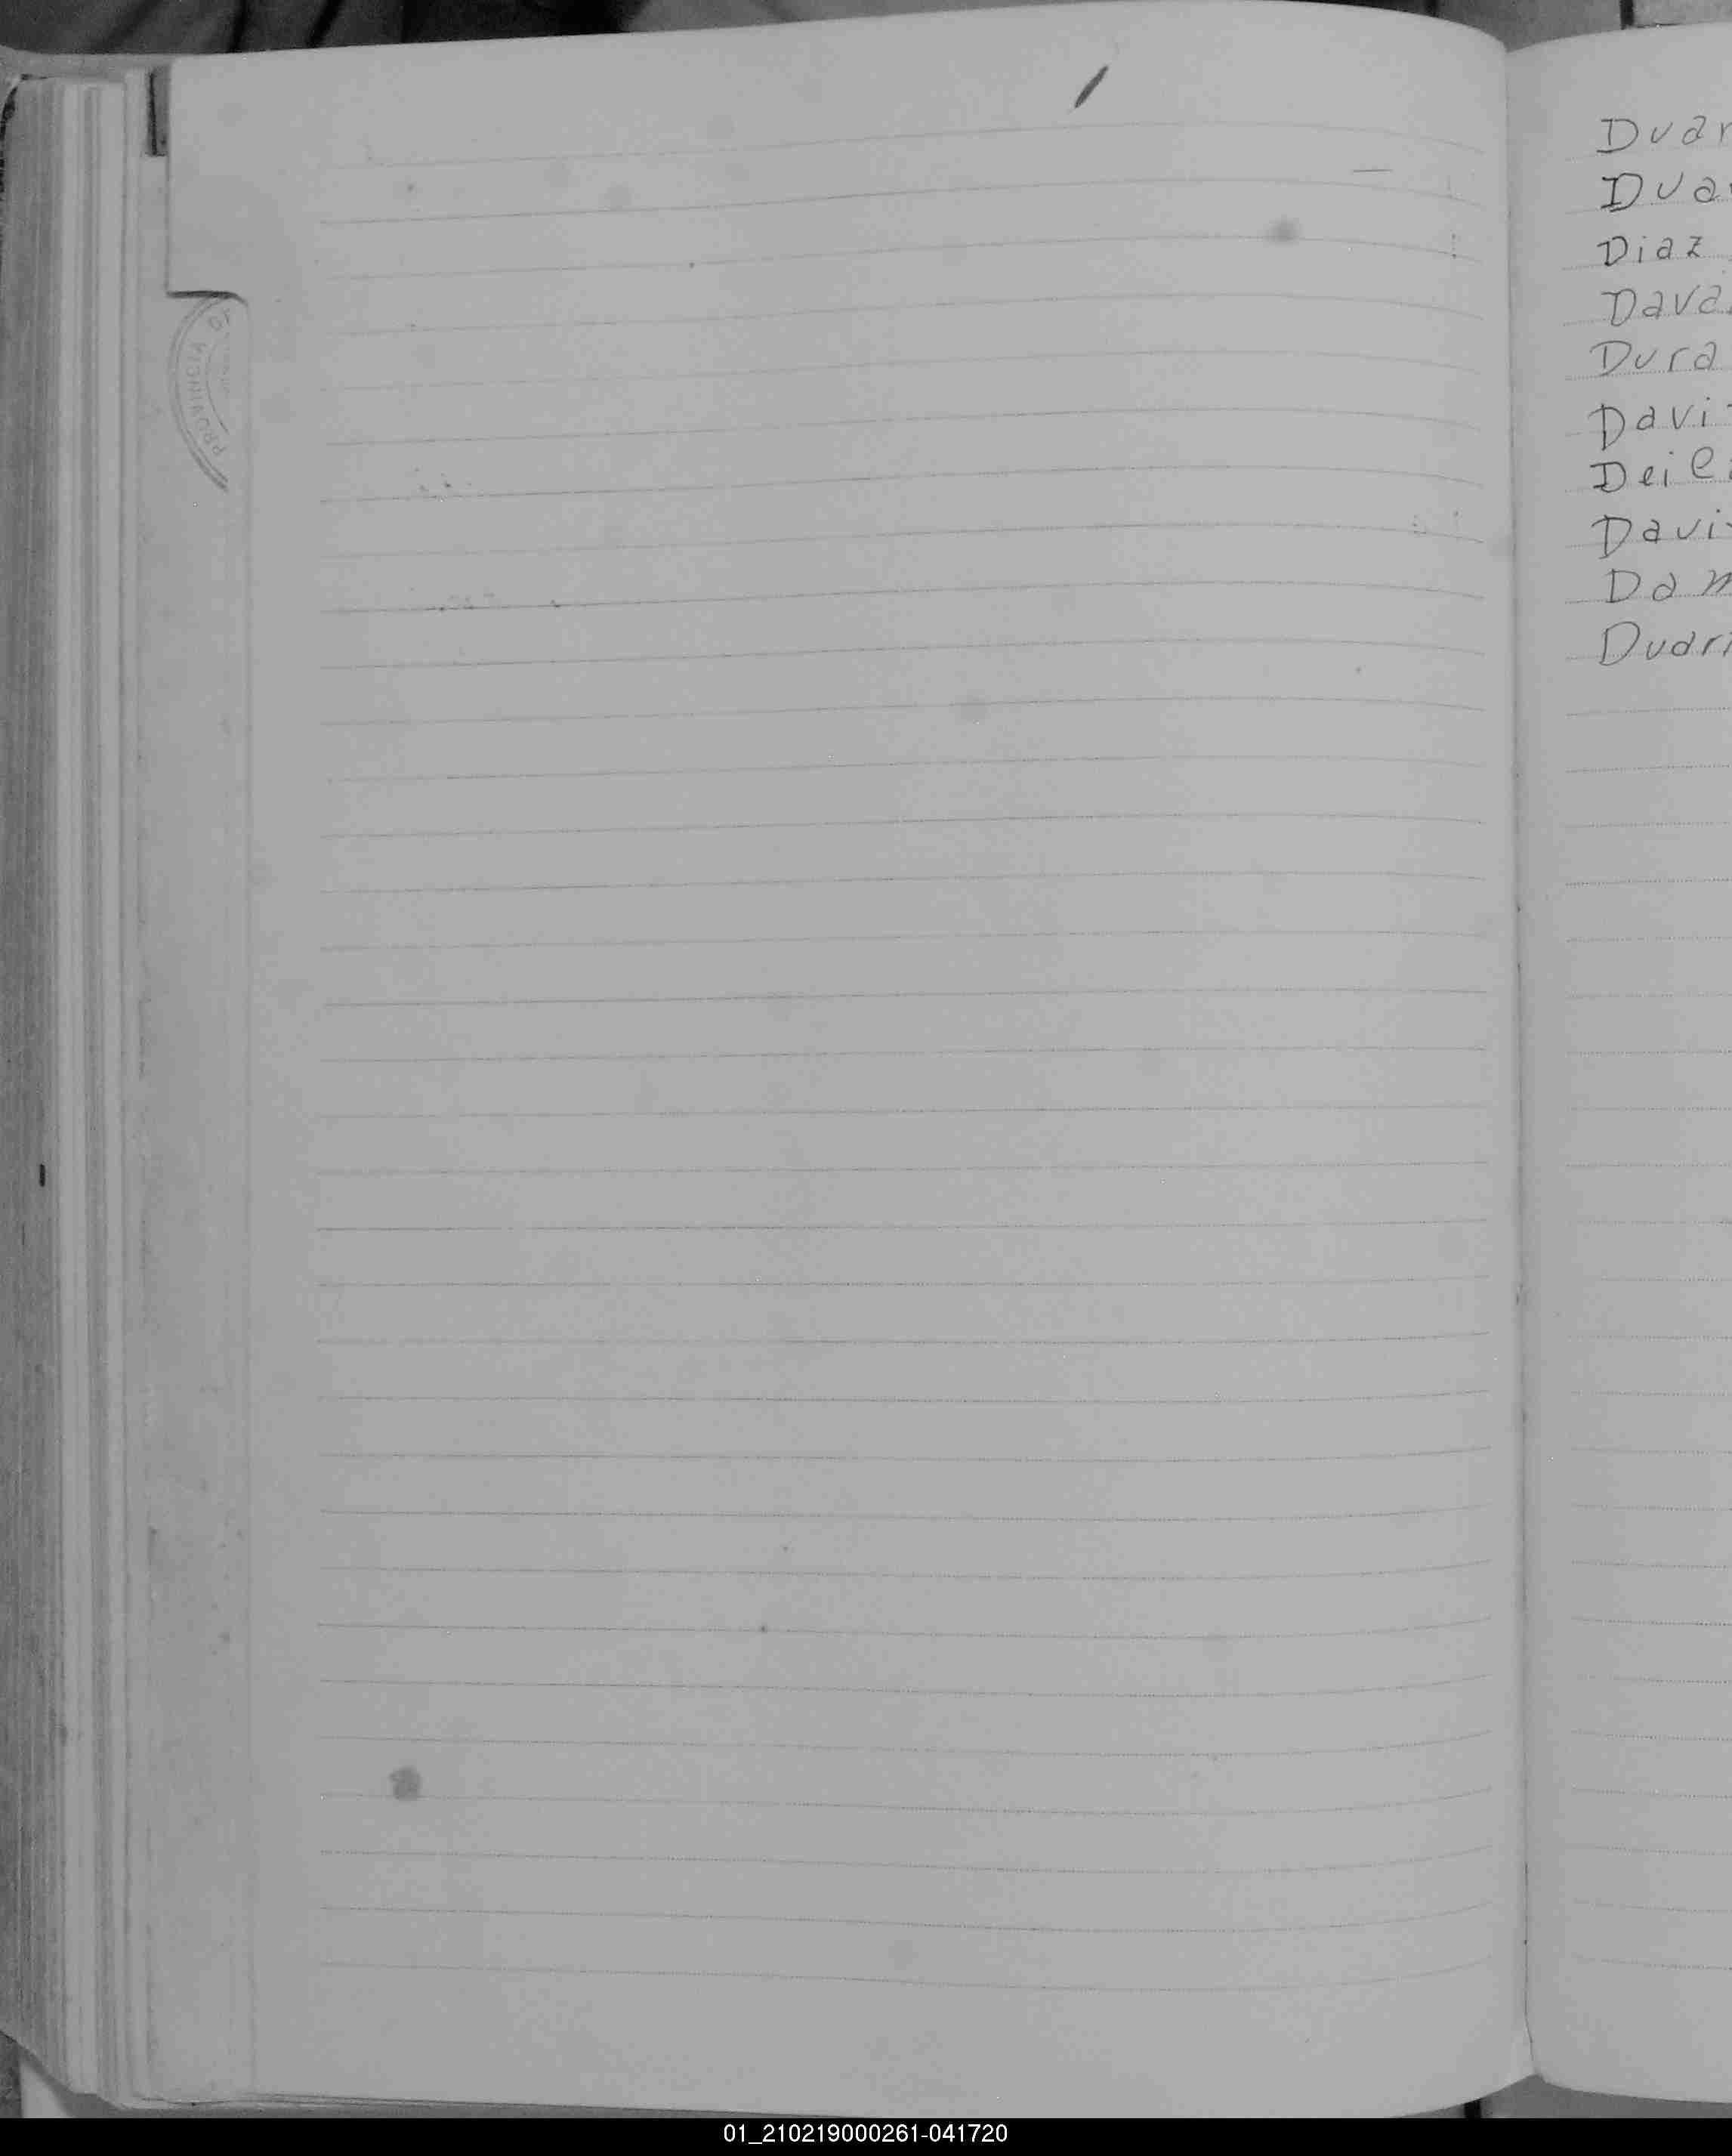 PROVINCIA DE
Duar
Dua
Diaz
Dava
Dura
Davi
Deile
Davi
Dam
Duar
01_210219000261-041720